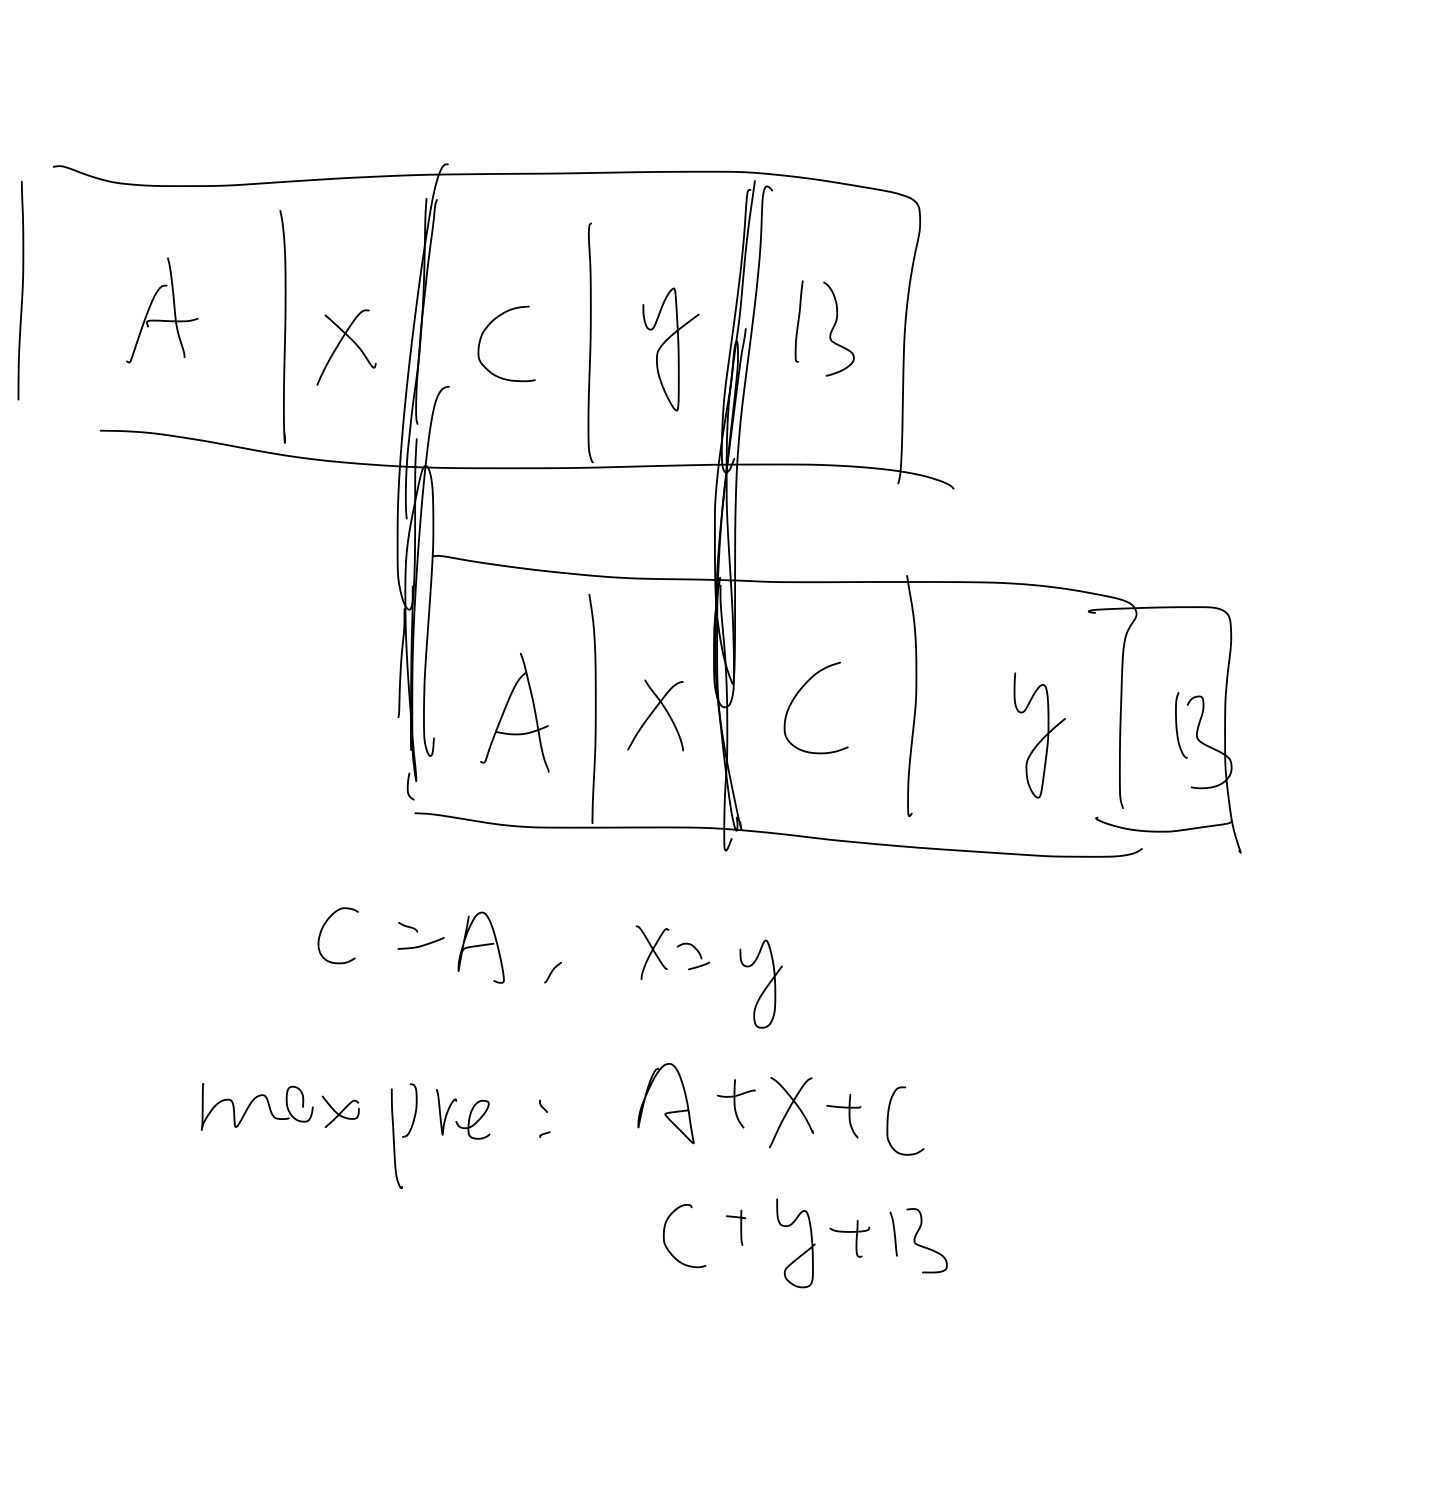 A X C y B
A X C y B
C = A, X = y
maxpre: A+X+C
C+y+B